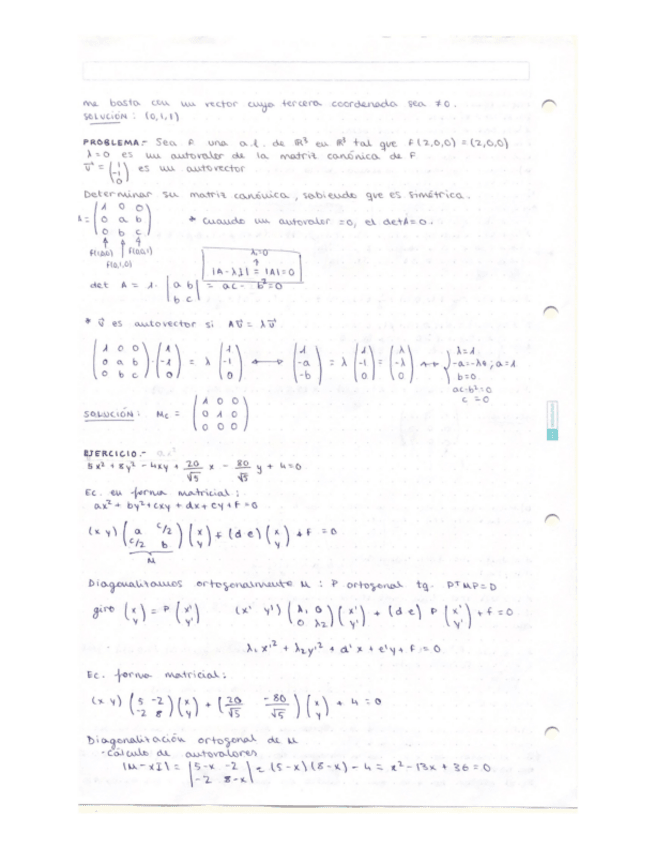 me basta con un vector cuya tercera coordenada sea ≠0.
SOLUCIÓN : (0,1,1)
PROBLEMA.- Sea F una a.l. de ℝ³ en ℝ³ tal que F(2,0,0) = (2,0,0)
λ=0 es un autovalor de la matriz canónica de F
v⃗ = (1 -1 0) es un autovector
Determinar su matriz canónica, sabiendo que es simétrica.
A = (1 0 0 / 0 a b / 0 b c) * Cuando un autovalor =0, el detA=0.
F(1,0,0) F(0,0,1)
F(0,1,0)
λ=0
|A-λI| = |A|=0
det A = 1· |a b / b c| = ac - b² =0
* v⃗ es autovector si Av⃗ = λv⃗
(1 0 0 / 0 a b / 0 b c) · (1 / -1 / 0) = λ (1 / -1 / 0) ⟷ (1 / -a / -b) = λ (1 / -1 / 0) = (λ / -λ / 0) ⟷ { λ=1
-a=-λ ; a=1
b=0
ac-b²=0
c=0
SOLUCIÓN: Mc = (1 0 0 / 0 1 0 / 0 0 0)
EJERCICIO.-
5x² + 8y² - 4xy + 20/√5 x - 80/√5 y + 4=0
Ec. en forma matricial:
ax² + by² + cxy + dx + ey + F =0
(x y) (a c/2 / c/2 b) (x / y) + (d e) (x / y) + F =0
M
Diagonalizamos ortogonalmente M : P ortogonal tq. PᵗMP=D
giro (x / y) = P (x' / y') (x' y') (λ₁ 0 / 0 λ₂) (x' / y') + (d e) P (x' / y') + f =0
λ₁x'² + λ₂y'² + d'x + e'y + F =0
Ec. forma matricial:
(x y) (5 -2 / -2 8) (x / y) + (20/√5 -80/√5) (x / y) + 4 =0
Diagonalización ortogonal de M
· Cálculo de autovalores
|M-xI| = |5-x -2 / -2 8-x| = (5-x)(8-x) - 4 = x² - 13x + 36 =0